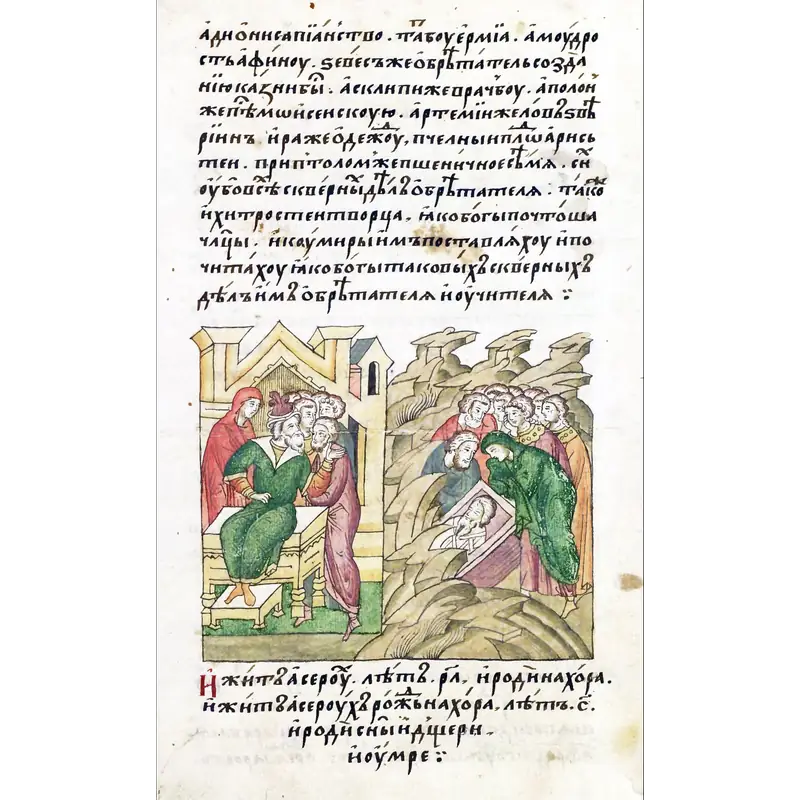 а дионисапїанство. таⷫбоуермїа. амоудро
стьафиноу. ѕевесъжеобрѣтательсозда
нїюказнибы́. асклипижеврачбоу. аполон
жепѣⷭ҇мѡисенскоую. артемїижеловъзвѣ
рїинъ иражеодеждоу, пчелныиплѡдарисъ
теи. приптоломѣжепшеничноесѣмѧ. сиⷯ
оубовсѣⷯсквернⷯыдѣлъобрѣтателѧ. тако
ихитростеитворца. ꙗкобогыпочтоша
члц҃ы. икоумирыимъпоставлѧхоу ипо
читахоу ꙗкобогытаковыхъскверныхъ
дѣлъимъобрѣтателѧ иоучителѧ ⁘
Иживъсероуⷯ. лѣтъ. рл҃. иродинахора.
иживъсероухърождьнахора. лѣтъ. с҃.
иродисныⷩидщери.
иоумре ⁘